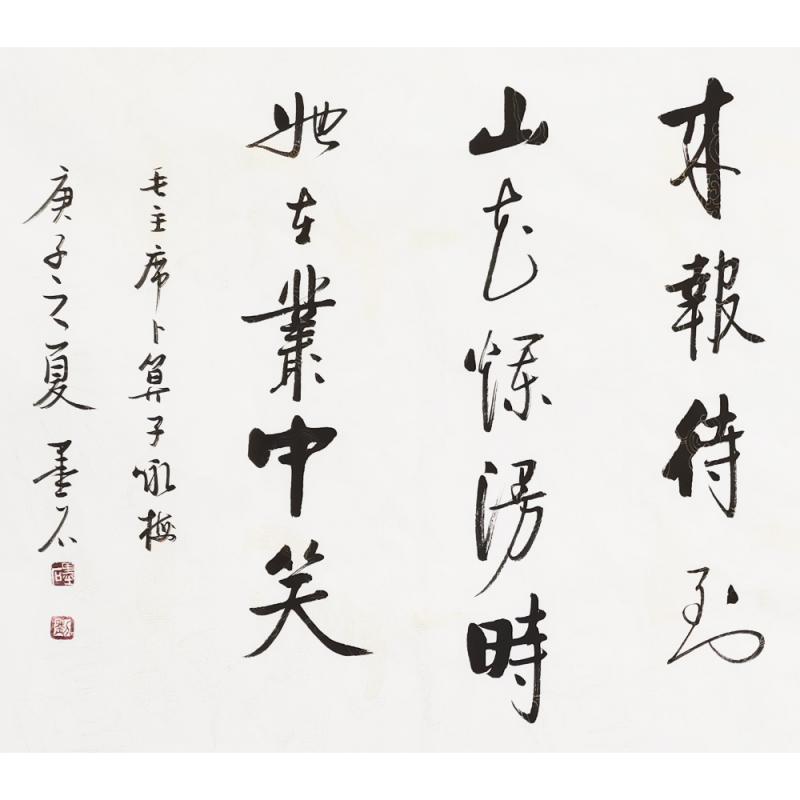 来報待到
山花爛漫時
她在叢中笑
毛主席卜算子咏梅
庚子之夏 墨石